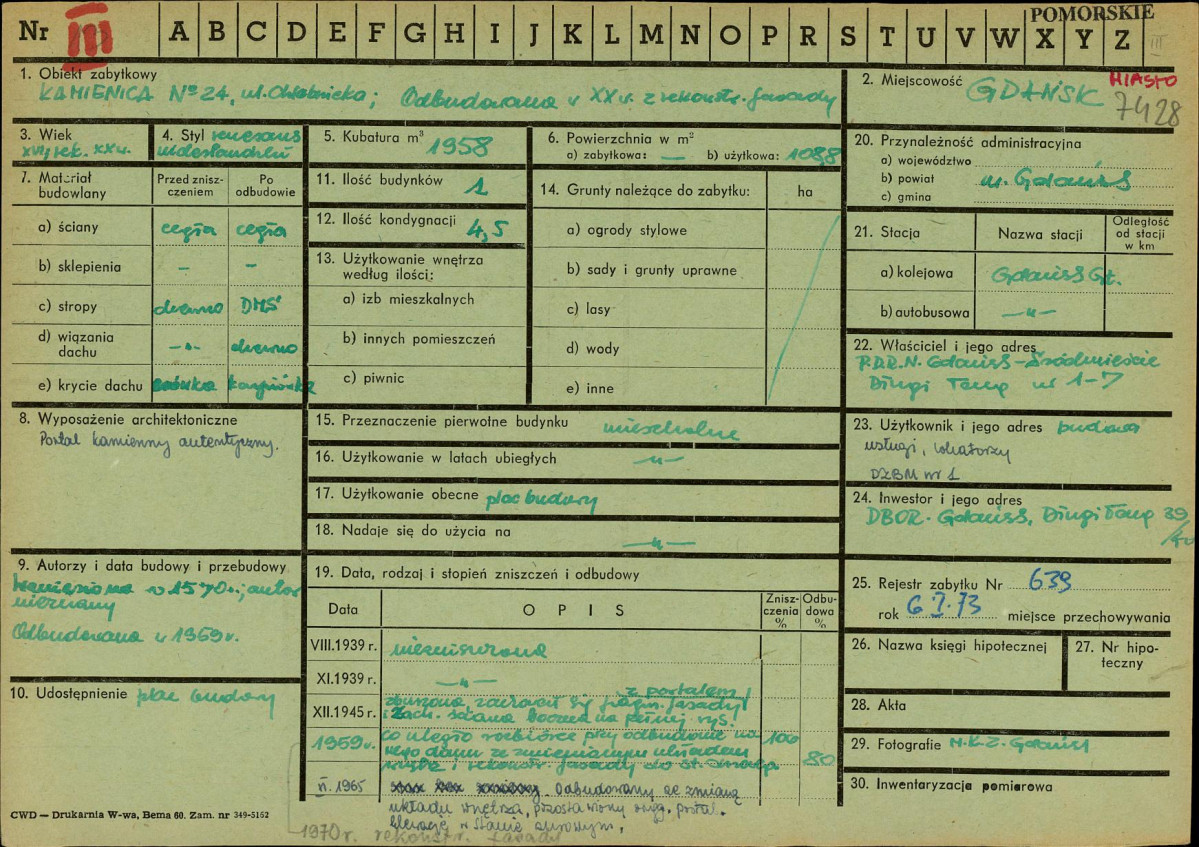 Nr III A B C D E F G H I J K L M N O P R S T U V W X Y Z
POMORSKIE
III
1. Obiekt zabytkowy
KAMIENICA Nº 24, ul. Chlebnicka; Odbudowana w XX w. z rekonstr. fasady
2. Miejscowość GDAŃSK
MIASTO
7428
3. Wiek
XVI, rek. XX w.
4. Styl renesans
niderlandzki
5. Kubatura m³ 1958
6. Powierzchnia w m²
a) zabytkowa: — b) użytkowa: 108,8
7. Materiał budowlany
Przed zniszczeniem
Po odbudowie
a) ściany cegła cegła
b) sklepienia - -
c) stropy drewno DMS
d) wiązania dachu -"- drewno
e) krycie dachu karpiówka
8. Wyposażenie architektoniczne
Portal kamienny autentyczny.
9. Autorzy i data budowy i przebudowy
Wzniesiona w 1570 r.; autor
nieznany
Odbudowana w 1959 r.
10. Udostępnienie plac budowy
11. Ilość budynków 1
12. Ilość kondygnacji 4,5
13. Użytkowanie wnętrza
według ilości:
a) izb mieszkalnych
b) innych pomieszczeń
c) piwnic
14. Grunty należące do zabytku: ha
a) ogrody stylowe
b) sady i grunty uprawne
c) lasy
d) wody
e) inne
15. Przeznaczenie pierwotne budynku mieszkalne
16. Użytkowanie w latach ubiegłych -"-
17. Użytkowanie obecne plac budowy
18. Nadaje się do użycia na -"-
19. Data, rodzaj i stopień zniszczeń i odbudowy
Data OPIS Zniszczenia % Odbudowa %
VIII.1939 r. niezniszczona
XI.1939 r. -"-
z portalem
XII.1945 r. zburzona, zachował się fragm. fasady
i zach. ściana boczna na pełnej wys.
1959 r. co uległo rozbiórce przy odbudowie no- 100
wego domu ze zmienianym układem 80
wnętrz i rekonstr. fasady do st.
II. 1965 Odbudowany ze zmianą
układu wnętrza, pozostawiony oryg. portal.
Elewacje w stanie surowym.
1970 r. rekonstr. fasady
20. Przynależność administracyjna
a) województwo
b) powiat m. Gdańsk
c) gmina
21. Stacja Nazwa stacji Odległość od stacji w km
a) kolejowa Gdańsk Gł.
b) autobusowa -"-
22. Właściciel i jego adres
P.D.R.N. Gdańsk-Śródmieście
Długi Targ nr 1-7
23. Użytkownik i jego adres budowa
usługi, lokatorzy
DZBM nr 1
24. Inwestor i jego adres
DBOR. Gdańsk, Długi Targ 39
/40
25. Rejestr zabytku Nr 639
rok 6.I.73 miejsce przechowywania
26. Nazwa księgi hipotecznej
27. Nr hipoteczny
28. Akta
29. Fotografie M.K.Z. Gdańsk
30. Inwentaryzacja pomiarowa
CWD — Drukarnia W-wa, Bema 60. Zam. nr 349-5162